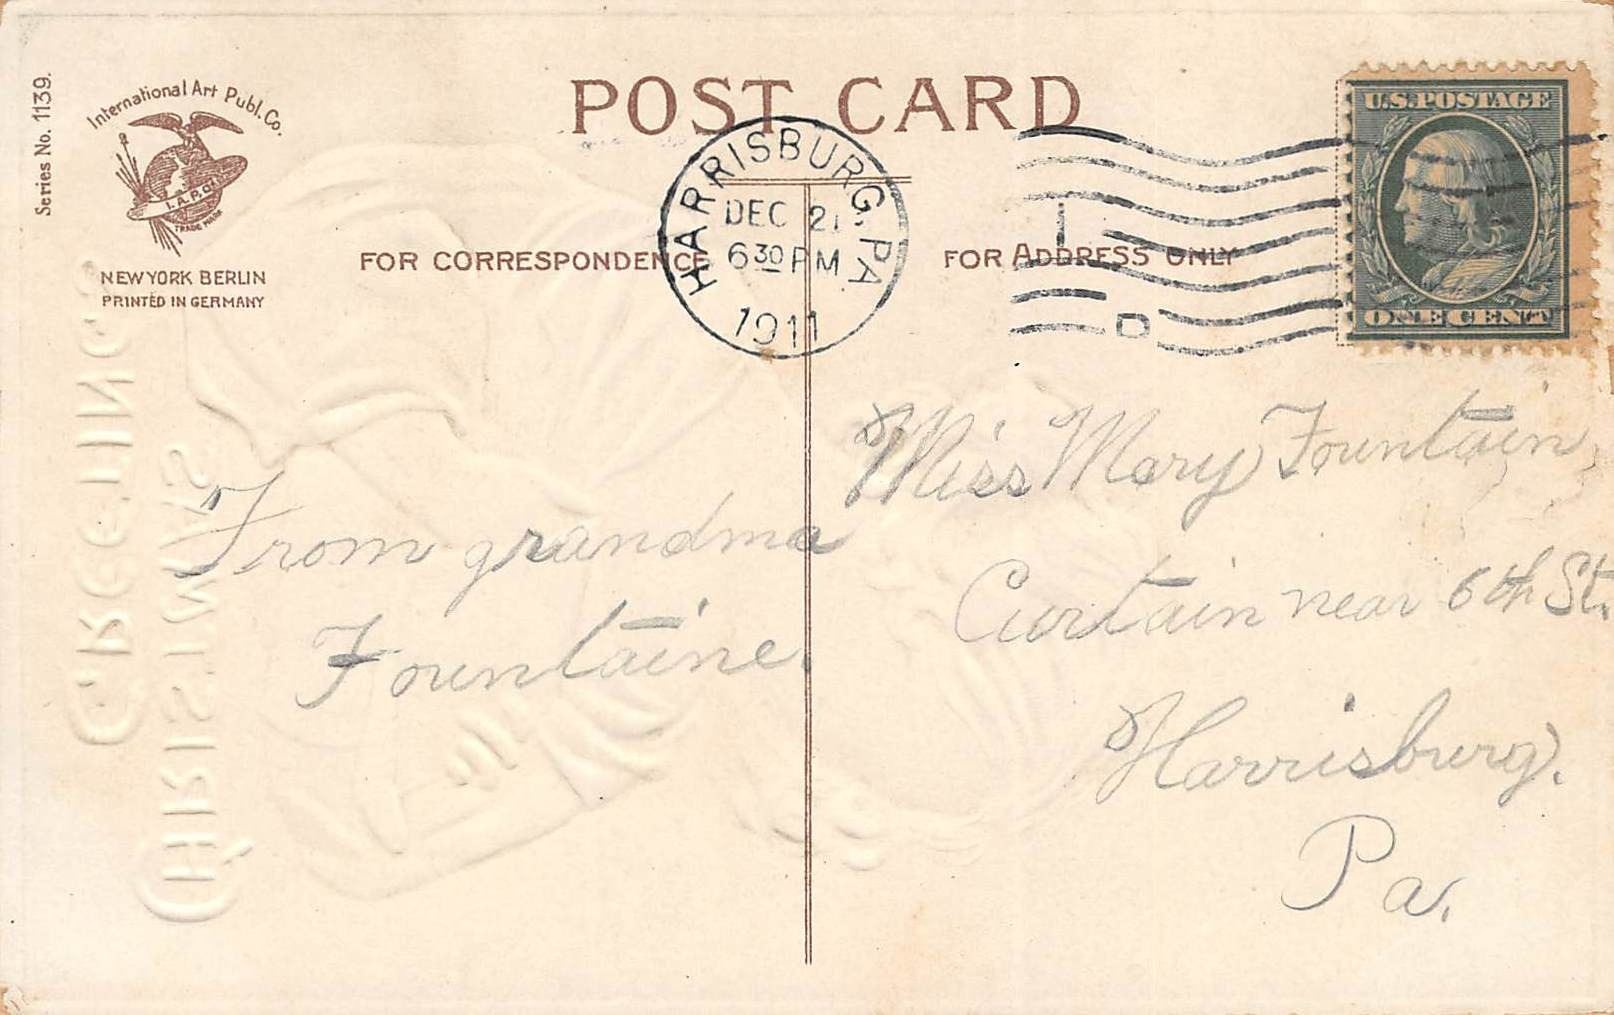 Series No. 1139.
International Art Publ. Co.
I. A. P. Co.
TRADE MARK
NEW YORK BERLIN
PRINTED IN GERMANY
POST CARD
HARRISBURG, PA
DEC 21
6 30 PM
1911
1
D
U.S. POSTAGE
ONE CENT
FOR CORRESPONDENCE
FOR ADDRESS ONLY
CHRISTMAS
GREETINGS
From grandma
Fountaine.
Miss Mary Fountain,
Curtain near 6th St.
Harrisburg.
Pa.